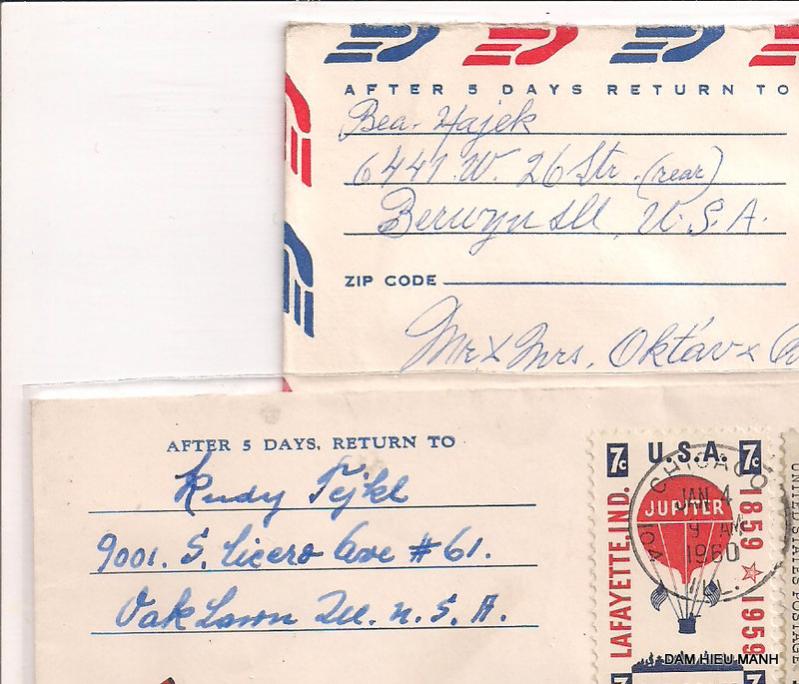 AFTER 5 DAYS RETURN TO
Bea. Hajek
6441 W. 26 Str. (rear)
Berwyn Ill, U.S.A.
ZIP CODE
Mr & Mrs. Oktav &
AFTER 5 DAYS, RETURN TO
Rudy Fejkl
9001. S. Cicero Ave # 61.
Oak Lawn Ill. U. S. A.
7c U.S.A. 7c
CHICAGO
JAN 4
9 AM
1960
ILL.
JUPITER
LAFAYETTE, IND.
1859 ☆ 1959
UNITED STATES POSTAGE
DAM HIEU MANH